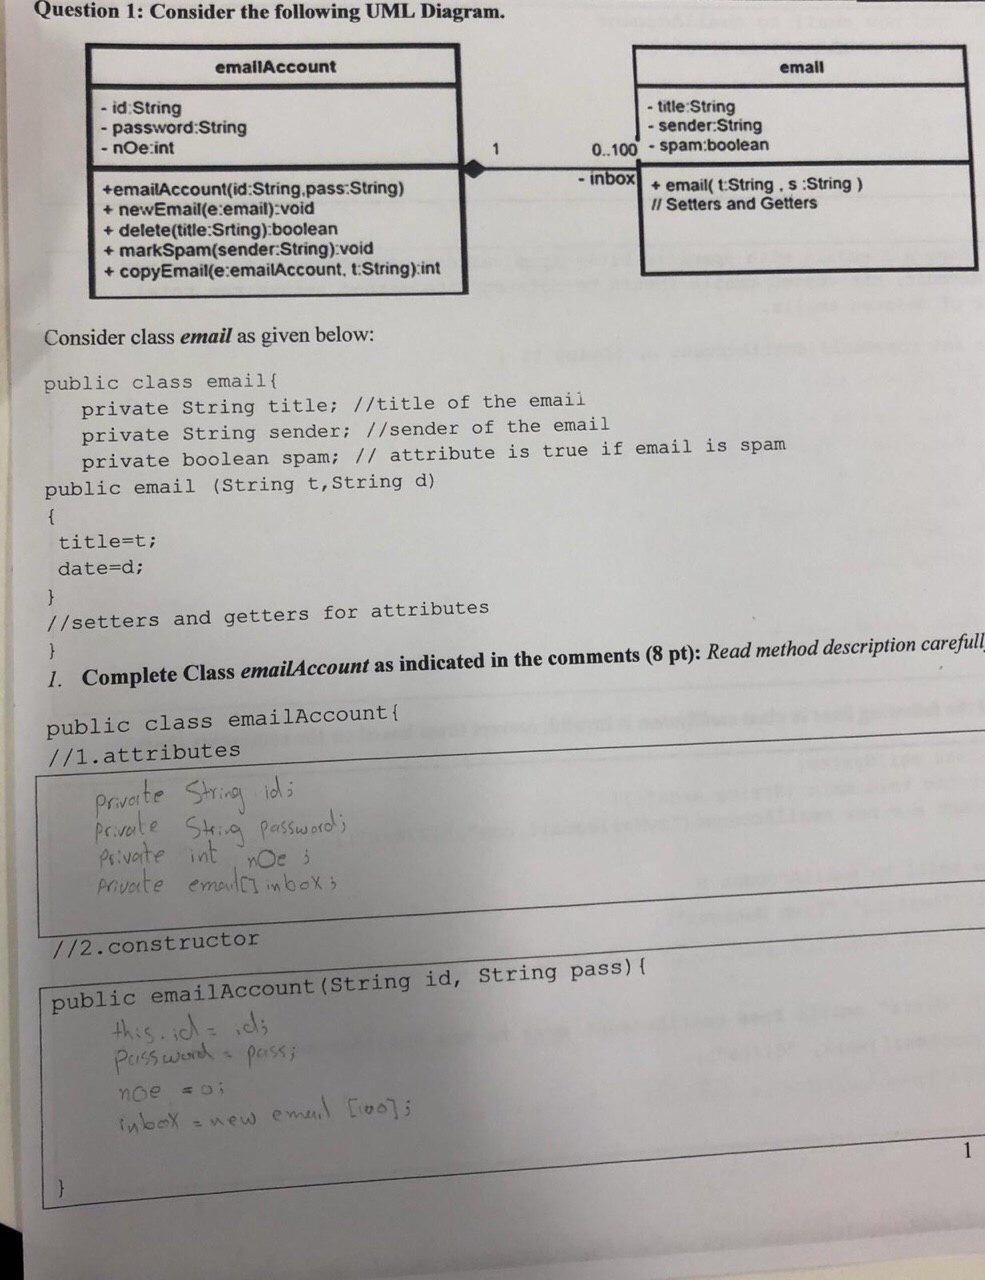 Question 1: Consider the following UML Diagram.
emailAccount
- id:String
- password:String
- nOe:int
+emailAccount(id:String,pass:String)
+ newEmail(e:email):void
+ delete(title:Srting):boolean
+ markSpam(sender:String):void
+ copyEmail(e:emailAccount, t:String):int
1
0..100
- inbox
email
- title:String
- sender:String
- spam:boolean
+ email( t:String , s :String )
// Setters and Getters
Consider class email as given below:
public class email{
private String title; //title of the email
private String sender; //sender of the email
private boolean spam; // attribute is true if email is spam
public email (String t,String d)
{
title=t;
date=d;
}
//setters and getters for attributes
}
1. Complete Class emailAccount as indicated in the comments (8 pt): Read method description carefull
public class emailAccount{
//1.attributes
private String id;
private String password;
private int nOe ;
private email[] inbox;
//2.constructor
public emailAccount(String id, String pass){
this.id = id;
password = pass;
nOe = 0;
inbox = new email [100];
}
1